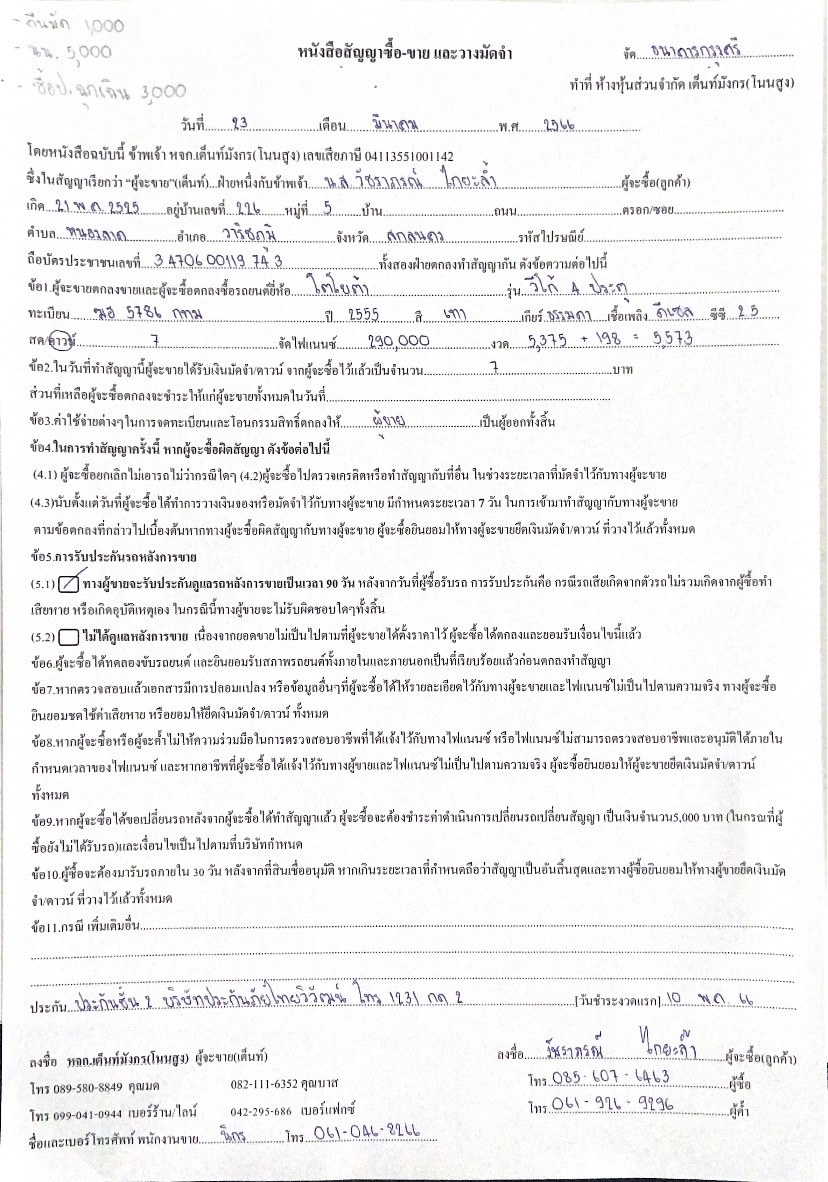 - คืนมัด 1,000
- นน. 5,000
- ช้อป.ฉุกเฉิน 3,000
หนังสือสัญญาซื้อ-ขาย และวางมัดจำ
จัด ธนาคารกรุงศรี
ทำที่ ห้างหุ้นส่วนจำกัด เต็นท์มังกร(โนนสูง)
วันที่ 23 เดือน มีนาคม พ.ศ 2566
โดยหนังสือฉบับนี้ ข้าพเจ้า หจก.เต็นท์มังกร(โนนสูง) เลขเสียภาษี 04113551001142
ซึ่งในสัญญาเรียกว่า “ผู้จะขาย”(เต็นท์)...ฝ่ายหนึ่งกับข้าพเจ้า น.ส. วัชราภรณ์ ไกยะล้ำ ผู้จะซื้อ(ลูกค้า)
เกิด 21 พ.ค. 2525 อยู่บ้านเลขที่ 226 หมู่ที่ 5 บ้าน ถนน ตรอก/ซอย
ตำบล หนองลาด อำเภอ วาริชภูมิ จังหวัด สกลนคร รหัสไปรษณีย์
ถือบัตรประชาชนเลขที่ 3 4706 00119 74 3 ทั้งสองฝ่ายตกลงทำสัญญากัน ดังข้อความต่อไปนี้
ข้อ1.ผู้จะขายตกลงขายและผู้จะซื้อตกลงซื้อรถยนต์ยี่ห้อ โตโยต้า รุ่น วีโก้ 4 ประตู
ทะเบียน ฒฮ 5786 กทม ปี 2555 สี เทา เกียร์ ธรรมดา เชื้อเพลิง ดีเซล ซีซี 2.5
สด/ดาวน์ 7 จัดไฟแนนซ์ 290,000 งวด 5,375 + 198 = 5,573
ข้อ2.ในวันที่ทำสัญญานี้ผู้จะขายได้รับเงินมัดจำ/ดาวน์ จากผู้จะซื้อไว้แล้วเป็นจำนวน 7 บาท
ส่วนที่เหลือผู้จะซื้อตกลงจะชำระให้แก่ผู้จะขายทั้งหมดในวันที่
ข้อ3.ค่าใช้จ่ายต่างๆในการจดทะเบียนและโอนกรรมสิทธิ์ตกลงให้ ผู้ขาย เป็นผู้ออกทั้งสิ้น
ข้อ4.ในการทำสัญญาครั้งนี้ หากผู้จะซื้อผิดสัญญา ดังข้อต่อไปนี้
(4.1) ผู้จะซื้อยกเลิกไม่เอารถไม่ว่ากรณีใดๆ (4.2)ผู้จะซื้อไปตรวจเครดิตหรือทำสัญญากับที่อื่น ในช่วงระยะเวลาที่มัดจำไว้กับทางผู้จะขาย
(4.3)นับตั้งแต่วันที่ผู้จะซื้อได้ทำการวางเงินจองหรือมัดจำไว้กับทางผู้จะขาย มีกำหนดระยะเวลา 7 วัน ในการเข้ามาทำสัญญากับทางผู้จะขาย
ตามข้อตกลงที่กล่าวไปเบื้องต้นหากทางผู้จะซื้อผิดสัญญากับทางผู้จะขาย ผู้จะซื้อยินยอมให้ทางผู้จะขายยึดเงินมัดจำ/ดาวน์ ที่วางไว้แล้วทั้งหมด
ข้อ5.การรับประกันรถหลังการขาย
(5.1) ทางผู้ขายจะรับประกันดูแลรถหลังการขายเป็นเวลา 90 วัน หลังจากวันที่ผู้ซื้อรับรถ การรับประกันคือ กรณีรถเสียเกิดจากตัวรถไม่รวมเกิดจากผู้ซื้อทำ
เสียหาย หรือเกิดอุบัติเหตุเอง ในกรณีนี้ทางผู้ขายจะไม่รับผิดชอบใดๆทั้งสิ้น
(5.2) ไม่ได้ดูแลหลังการขาย เนื่องจากยอดขายไม่เป็นไปตามที่ผู้จะขายได้ตั้งราคาไว้ ผู้จะซื้อได้ตกลงและยอมรับเงื่อนไขนี้แล้ว
ข้อ6.ผู้จะซื้อได้ทดลองขับรถยนต์ และยินยอมรับสภาพรถยนต์ทั้งภายในและภายนอกเป็นที่เรียบร้อยแล้วก่อนตกลงทำสัญญา
ข้อ7.หากตรวจสอบแล้วเอกสารมีการปลอมแปลง หรือข้อมูลอื่นๆที่ผู้จะซื้อได้ให้รายละเอียดไว้กับทางผู้จะขายและไฟแนนซ์ไม่เป็นไปตามความจริง ทางผู้จะซื้อ
ยินยอมชดใช้ค่าเสียหาย หรือยอมให้ยึดเงินมัดจำ/ดาวน์ ทั้งหมด
ข้อ8.หากผู้จะซื้อหรือผู้จะค้ำไม่ให้ความร่วมมือในการตรวจสอบอาชีพที่ได้แจ้งไว้กับทางไฟแนนซ์ หรือไฟแนนซ์ไม่สามารถตรวจสอบอาชีพและอนุมัติได้ภายใน
กำหนดเวลาของไฟแนนซ์ และหากอาชีพที่ผู้จะซื้อได้แจ้งไว้กับทางผู้ขายและไฟแนนซ์ไม่เป็นไปตามความจริง ผู้จะซื้อยินยอมให้ผู้จะขายยึดเงินมัดจำ/ดาวน์
ทั้งหมด
ข้อ9.หากผู้จะซื้อได้ขอเปลี่ยนรถหลังจากผู้จะซื้อได้ทำสัญญาแล้ว ผู้จะซื้อจะต้องชำระค่าดำเนินการเปลี่ยนรถเปลี่ยนสัญญา เป็นเงินจำนวน5,000 บาท (ในกรณที่ผู้
ซื้อยังไม่ได้รับรถ)และเงื่อนไขเป็นไปตามที่บริษัทกำหนด
ข้อ10.ผู้ซื้อจะต้องมารับรถภายใน 30 วัน หลังจากที่สินเชื่ออนุมัติ หากเกินระยะเวลาที่กำหนดถือว่าสัญญาเป็นอันสิ้นสุดและทางผู้ซื้อยินยอมให้ทางผู้ขายยึดเงินมัด
จำ/ดาวน์ ที่วางไว้แล้วทั้งหมด
ข้อ11.กรณี เพิ่มเติมอื่น
ประกัน ประกันชั้น 2 บริษัทประกันภัยไทยวิวัฒน์ โทร 1231 กด 2 [วันชำระงวดแรก] 10 พ.ค. 66
ลงชื่อ หจก.เต็นท์มังกร(โนนสูง) ผู้จะขาย(เต็นท์)
ลงชื่อ วัชราภรณ์ ไกยะล้ำ ผู้จะซื้อ(ลูกค้า)
โทร 089-580-8849 คุณมด 082-111-6352 คุณบาส
โทร 085-607-6463 ผู้ซื้อ
โทร 099-041-0944 เบอร์ร้าน/ไลน์ 042-295-686 เบอร์แฟกซ์
โทร 061-926-9296 ผู้ค้ำ
ชื่อและเบอร์โทรศัพท์ พนักงานขาย นิกร โทร 061-046-8266